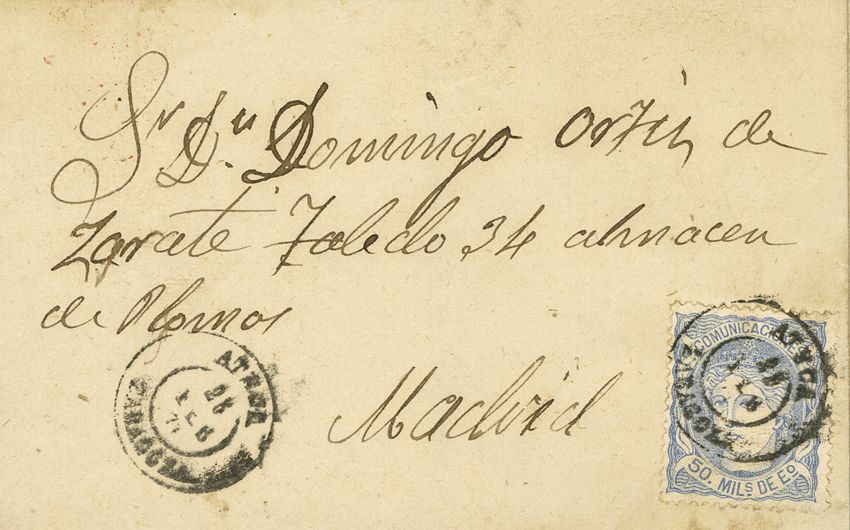 Sr Dn. Domingo Ortiz de
Zarate Toledo 34 almacen
de Plomos
Madrid
ATECA
28
FEB
ZARAGOZA
COMUNICACIONES
ATECA
28
FEB
ZARAGOZA
50. MILS DE Eo